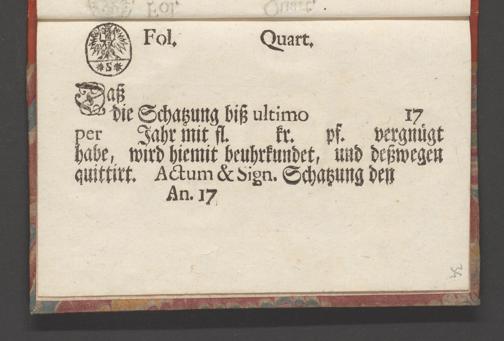 Fol. Quart.
*S*
Daß
die Schatzung biß ultimo 17
per Jahr mit fl. kr. pf. vergnügt
habe, wird hiemit beuhrkundet, und deßwegen
quittirt. Actum & Sign. Schatzung den
An. 17
34